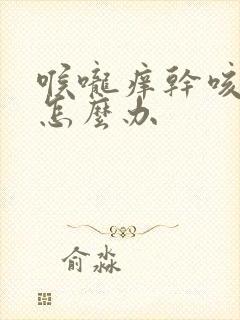 喉嚨痒幹咳
怎麽办
俞淼